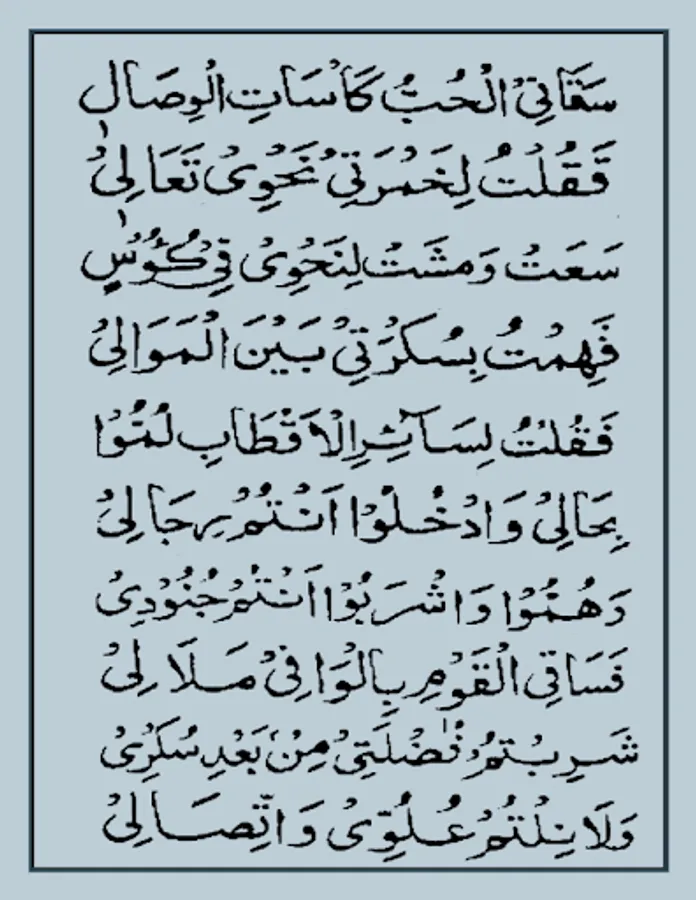 سَقَانِيْ الْحُبُّ كَأْسَاتِ الْوِصَالِ
فَقُلْتُ لِخَمْرَتِيْ نَحْوِيْ تَعَالِيْ
سَعَتْ وَمَشَتْ لِنَحْوِيْ فِيْ كُؤُوْسٍ
فَهِمْتُ بِسُكْرَتِيْ بَيْنَ الْمَوَالِيْ
فَقُلْتُ لِسَآئِرِ الْاَقْطَابِ لُمُّوْا
بِحَالِيْ وَادْخُلُوْا اَنْتُمْ رِجَالِيْ
وَهُمُّوْا وَاشْرَبُوْا اَنْتُمْ جُنُوْدِيْ
فَسَاقِي الْقَوْمِ بِالْوَافِيْ مَلَالِيْ
شَرِبْتُمْ فُضْلَتِيْ مِنْ بَعْدِ سُكْرِيْ
وَلَا نِلْتُمْ عُلُوِّيْ وَاتِّصَالِيْ